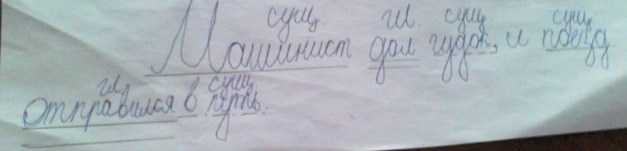 сущ. гл. сущ. сущ.
Машинист дал гудок, и поезд
гл. сущ.
отправился в путь.